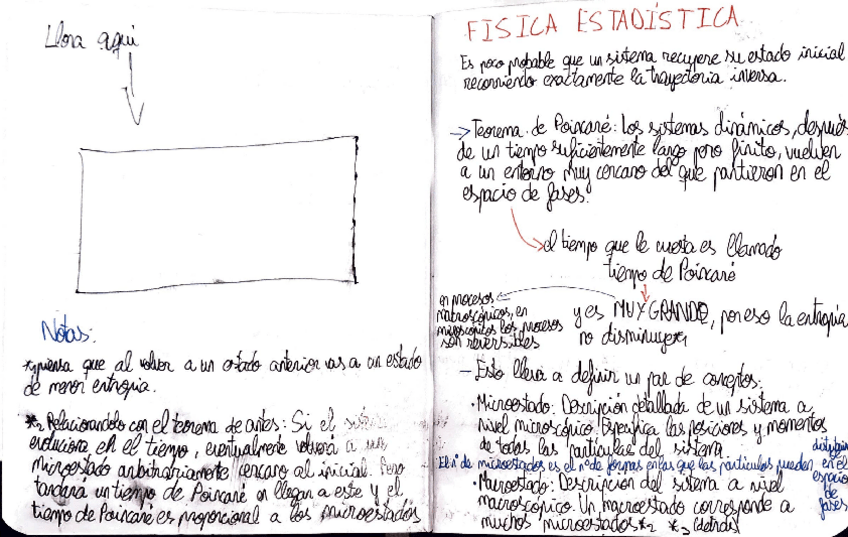 Llora aquí
Notas:
*1 piensa que al volver a un estado anterior vas a un estado
de menor entropia.
*2 Relacionandolo con el teorema de antes: Si el
evoluciona en el tiempo, eventualmente volverá a un
microestado arbitrariamente cercano al inicial. Pero
tardará un tiempo de Poixaré en llegar a este y el
tiempo de Poixaré es proporcional a los microestados
FISICA ESTADÍSTICA
Es poco probable que un sistema recupere su estado inicial
recorriendo exactamente la trayectoria inversa.
→ Teorema de Poixaré: los sistemas dinámicos, después
de un tiempo suficientemente largo pero finito, vuelven
a un entorno muy cercano del que partieron en el
espacio de fases.
el tiempo que le cuesta es llamado
tiempo de Poixaré
en procesos
macroscópicos, en
microscópicos los procesos
son reversibles
y es MUY GRANDE, por eso la entropia
no disminuye *1
- Esto lleva a definir un par de conceptos:
· Microestado: Descripción detallada de un sistema a
nivel microscópico. Especifica las posiciones y momentos
de todas las particulas del sistema.
El nº de microestados es el nº de formas en las que las particulas pueden
distribuir
en el
espacio
de
fases
· Macroestado: Descripcion del sistema a nivel
macroscópico. Un macroestado corresponde a
muchos microestados *2 *3 (detrás)